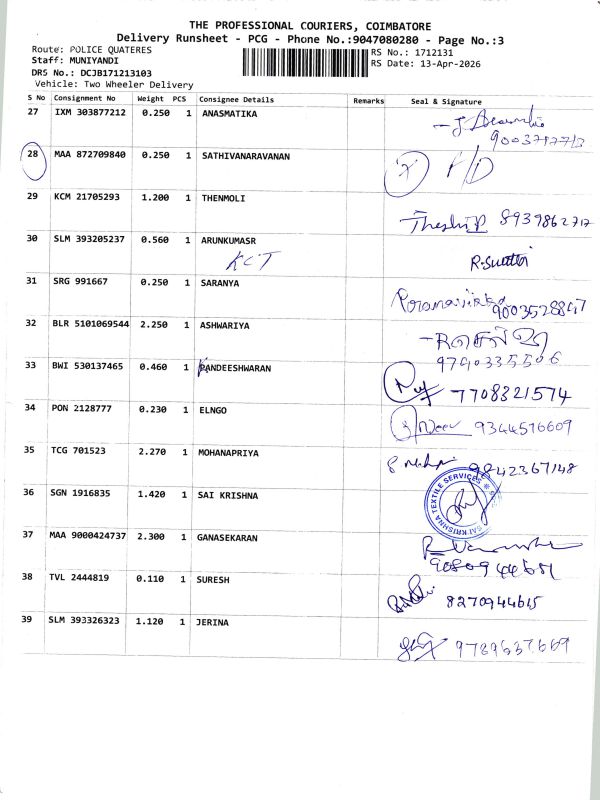 THE PROFESSIONAL COURIERS, COIMBATORE
Delivery Runsheet - PCG - Phone No.:9047080280 - Page No.:3
Route: POLICE QUATERES
RS No.: 1712131
Staff: MUNIYANDI
RS Date: 13-Apr-2026
DRS No.: DCJB171213103
Vehicle: Two Wheeler Delivery
S No Consignment No Weight PCS Consignee Details Remarks Seal & Signature
27 IXM 303877212 0.250 1 ANASMATIKA
28 MAA 872709840 0.250 1 SATHIVANARAVANAN
29 KCM 21705293 1.200 1 THENMOLI
8939862717
30 SLM 393205237 0.560 1 ARUNKUMASR
KCT
31 SRG 991667 0.250 1 SARANYA
9003528847
32 BLR 5101069544 2.250 1 ASHWARIYA
9790335506
33 BWI 530137465 0.460 1 PANDEESHWARAN
7708321574
34 PON 2128777 0.230 1 ELNGO
9344516609
35 TCG 701523 2.270 1 MOHANAPRIYA
9842367148
36 SGN 1916835 1.420 1 SAI KRISHNA
SAI KRISHNA TEXTILE SERVICES
37 MAA 9000424737 2.300 1 GANASEKARAN
38 TVL 2444819 0.110 1 SURESH
8270944615
39 SLM 393326323 1.120 1 JERINA
9789637669